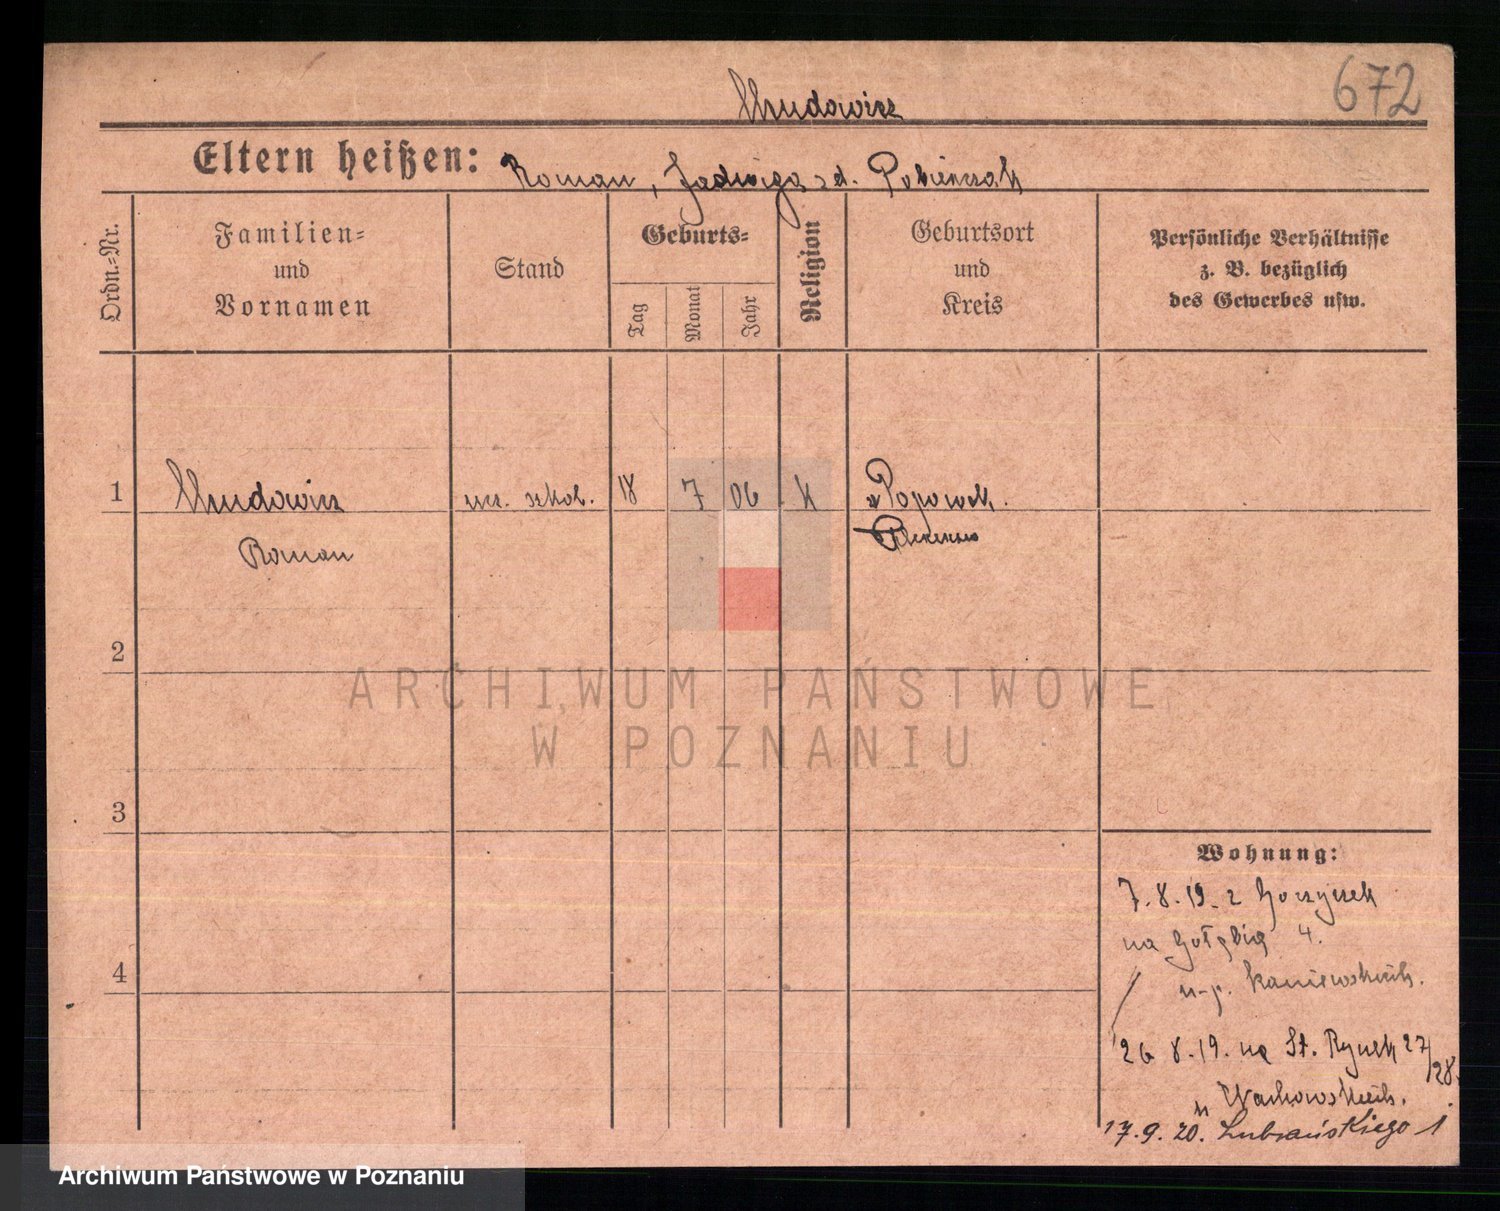 672
Eltern heißen: Roman, Jadwiga zd.
Ordn.-Nr.
Familien-
und
Vornamen
Stand
Geburts-
Tag
Monat
Jahr
Religion
Geburtsort
und
Kreis
Persönliche Verhältnisse
z. B. bezüglich
des Gewerbes usw.
1
ucz. szkol.
18
7
06
K
Roman
2
ARCHIWUM PAŃSTWOWE
W POZNANIU
3
Wohnung:
7.8.19. z Gorzyczek
na Gołębią 4.
4
u p. Kaniewskich.
26 8.19. na St. Rynek 27/28.
u Wachowskich.
17.9.20. Lubrańskiego 1
Archiwum Państwowe w Poznaniu